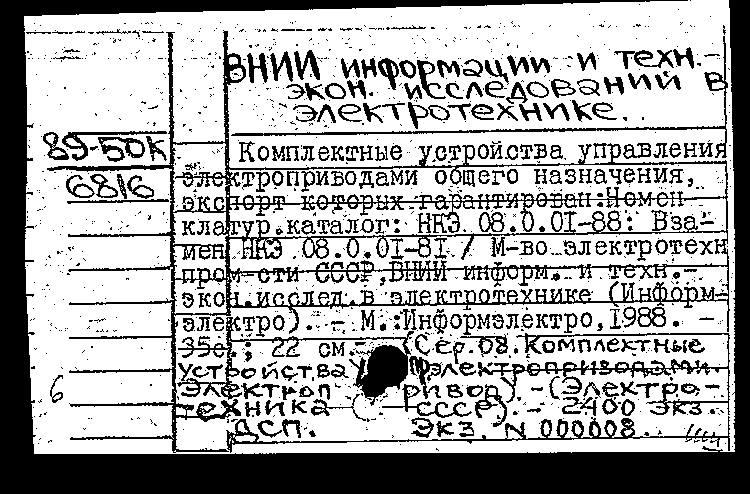 ВНИИ информации и техн.-
экон. исследований в
электротехнике.
89-50К
6816
Комплектные устройства управления
электроприводами общего назначения,
экспорт которых гарантирован:Номен-
клатур.каталог: НКЭ 08.0.01-88: Вза-
мен НКЭ 08.0.01-81 / М-во электротехн
пром-сти СССР,ВНИИ информ. и техн.-
экон.исслед.в электротехнике (Информ-
электро). - М.:Информэлектро,1988. -
35с.; 22 см.- (Сер.08.Комплектные
устройства электроприводами.
Электропривод). - (Электро-
техника СССР). - 2400 экз.
ДСП. Экз. N 000008.
6